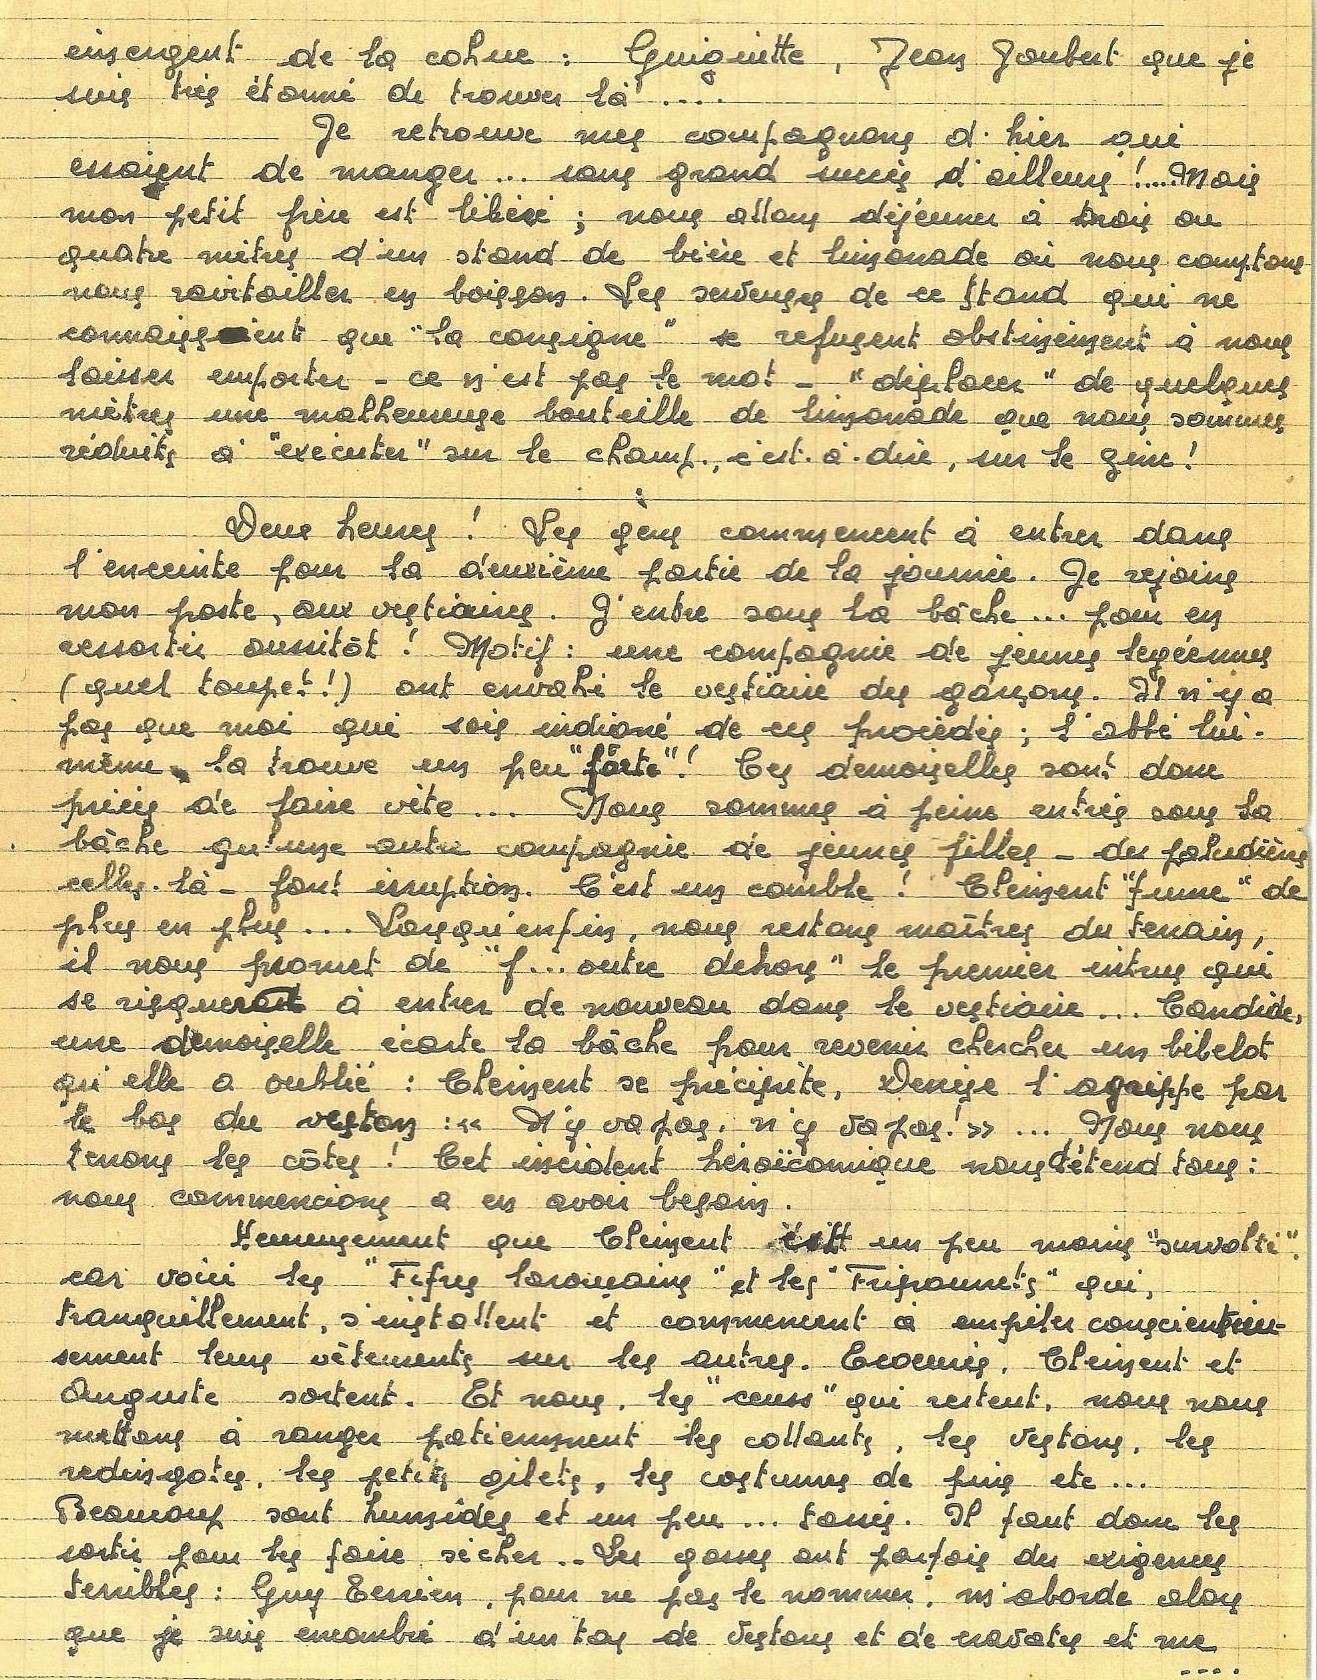 émergent de la cohue : Guiguitte, Jean Joubert que je
suis très étonné de trouver là ....
Je retrouve mes compagnons d'hier qui
essaient de manger ... sans grand succès d'ailleurs !.... Mais
mon petit frère est libéré ; nous allons déjeuner à trois ou
quatre mètres d'un stand de bière et limonade où nous comptons
nous ravitailler en boisson. Les serveuses de ce stand qui ne
connaissent que "la consigne" se refusent obstinément à nous
laisser emporter - ce n'est pas le mot - "déplacer" de quelques
mètres une malheureuse bouteille de limonade que nous sommes
réduits à "exécuter" sur le champ, c'est-à-dire, sur le zinc !
Deux heures ! Les gens commencent à entrer dans
l'enceinte pour la deuxième partie de la journée. Je rejoins
mon poste, aux vestiaires. J'entre sous la bâche ... pour en
ressortir aussitôt ! Motif : une compagnie de jeunes legéennes
(quel toupet !) ont envahi le vestiaire des garçons. Il n'y a
pas que moi qui sois indigné de ces procédés ; l'abbé lui-
même la trouve un peu "forte" ! Ces demoiselles sont donc
priées de faire vite ... Nous sommes à peine entrés sous la
bâche qu'une autre compagnie de jeunes filles - des paludières
celles-là - font irruption. C'est un comble ! Clément "fume" de
plus en plus ... Lorsqu'enfin, nous restons maîtres du terrain,
il nous promet de "f... outre dehors" le premier intrus qui
se risquerait à entrer de nouveau dans le vestiaire ... Candide,
une demoiselle écarte la bâche pour revenir chercher un bibelot
qu'elle a oublié : Clément se précipite, Denise l'agrippe par
le bas du veston : « N'y va pas, n'y va pas ! » ... Nous nous
tenons les côtes ! Cet incident héroïcomique nous détend tous :
nous commencions à en avoir besoin.
Heureusement que Clément est un peu moins "survolté".
car voici les "Fifres lorousains" et les "Friponnets" qui,
tranquillement, s'installent et commencent à empiler consciencieu-
sement leurs vêtements sur les autres. Ecoeurés, Clément et
Auguste sortent. Et nous, les "ceuss" qui restent, nous nous
mettons à ranger patiemment les collants, les vestons, les
redingotes, les petits gilets, les costumes de pins etc ...
Beaucoup sont humides et un peu ... tassés. Il faut donc les
sortir pour les faire sécher .. Les gosses ont parfois des exigences
terribles : Guy Terrien, pour ne pas le nommer, m'aborde alors
que je suis encombré d'un tas de vestons et de cravates et me
....